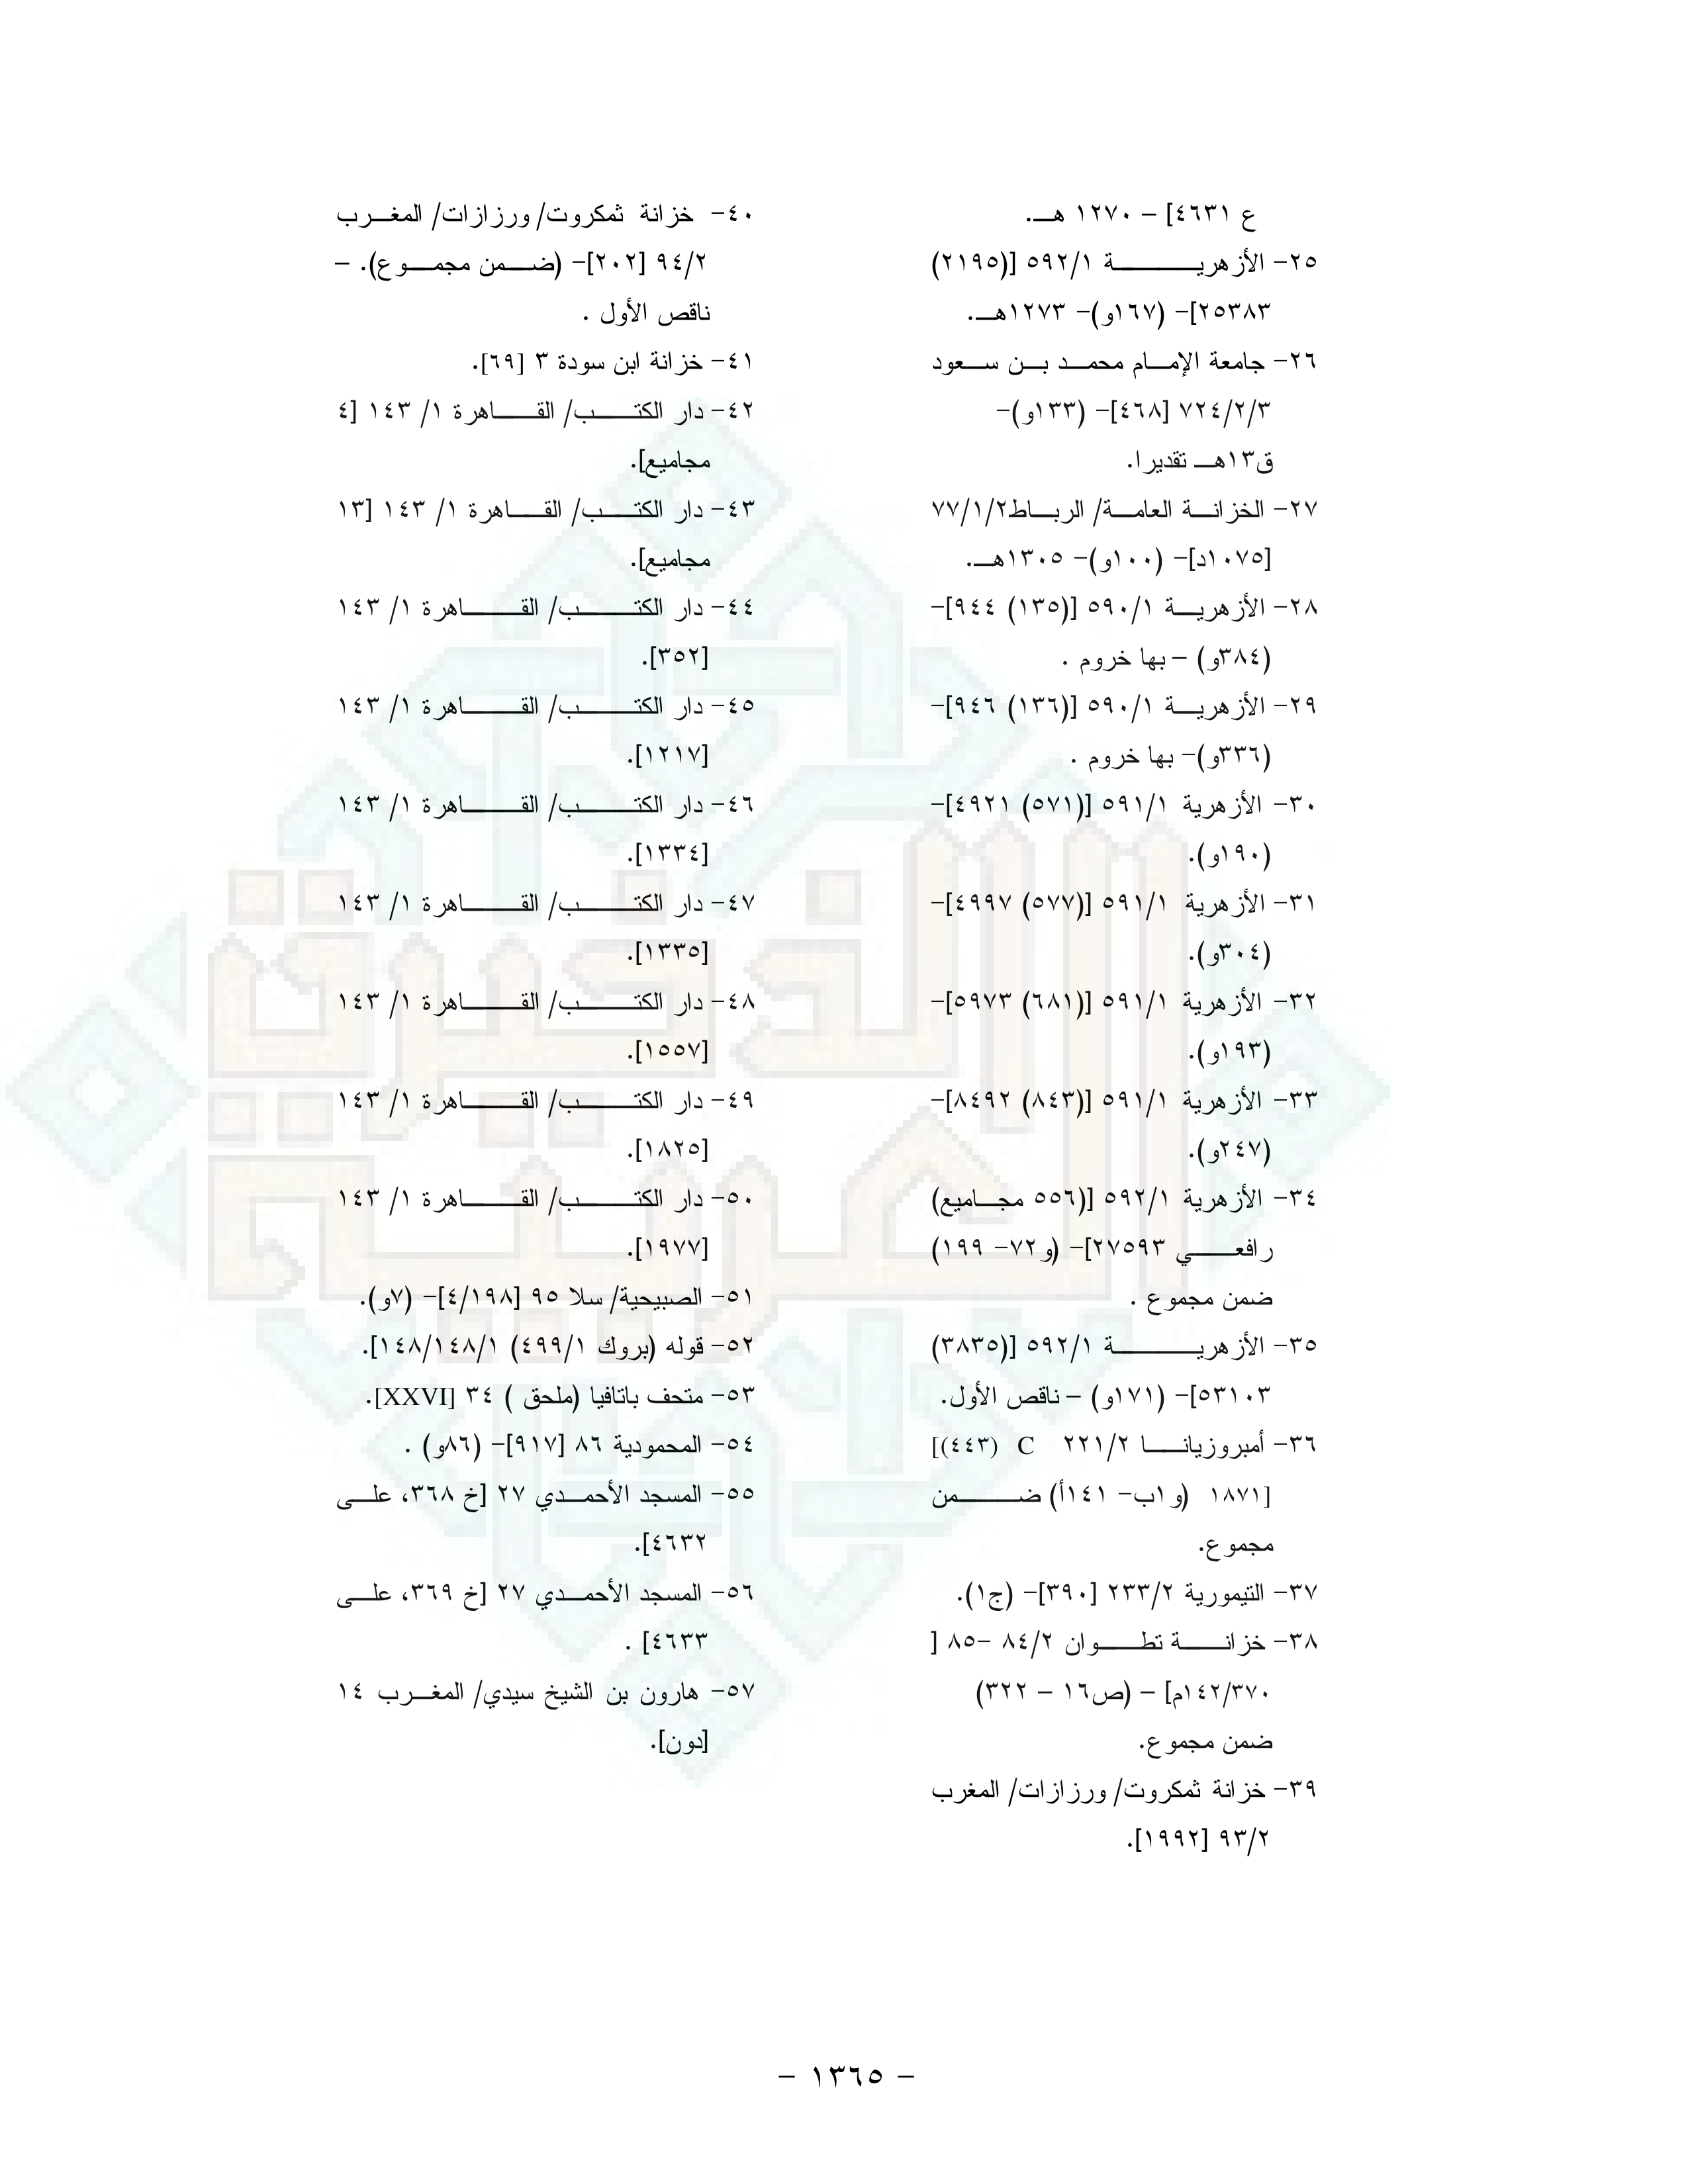 ع ٤٦٣١] – ١٢٧٠ هـ.
٢٥- الأزهرية ٥٩٢/١ [(٢١٩٥)
٢٥٣٨٣]- (١٦٧و)- ١٢٧٣هـ.
٢٦- جامعة الإمام محمد بن سعود
٧٢٤/٢/٣ [٤٦٨]- (١٣٣و)-
ق١٣هـ تقديرا.
٢٧- الخزانة العامة/ الرباط٧٧/١/٢
[١٠٧٥د]- (١٠٠و)- ١٣٠٥هـ.
٢٨- الأزهرية ٥٩٠/١ [(١٣٥) ٩٤٤]-
(٣٨٤و) – بها خروم .
٢٩- الأزهرية ٥٩٠/١ [(١٣٦) ٩٤٦]-
(٣٣٦و)- بها خروم .
٣٠- الأزهرية ٥٩١/١ [(٥٧١) ٤٩٢١]-
(١٩٠و).
٣١- الأزهرية ٥٩١/١ [(٥٧٧) ٤٩٩٧]-
(٣٠٤و).
٣٢- الأزهرية ٥٩١/١ [(٦٨١) ٥٩٧٣]-
(١٩٣و).
٣٣- الأزهرية ٥٩١/١ [(٨٤٣) ٨٤٩٢]-
(٢٤٧و).
٣٤- الأزهرية ٥٩٢/١ [(٥٥٦ مجاميع)
رافعي ٢٧٥٩٣]- (و٧٢- ١٩٩)
ضمن مجموع .
٣٥- الأزهرية ٥٩٢/١ [(٣٨٣٥)
٥٣١٠٣]- (١٧١و) – ناقص الأول.
٣٦- أمبروزيانا ٢٢١/٢ C (٤٤٣)]
[١٨٧١ (و١ب- ١٤١أ) ضمن
مجموع.
٣٧- التيمورية ٢٣٣/٢ [٣٩٠]- (ج١).
٣٨- خزانة تطوان ٨٤/٢ -٨٥ [
١٤٢/٣٧٠م] – (ص١٦ – ٣٢٢)
ضمن مجموع.
٣٩- خزانة ثمكروت/ ورزازات/ المغرب
٩٣/٢ [١٩٩٢].
٤٠- خزانة ثمكروت/ ورزازات/ المغرب
٩٤/٢ [٢٠٢]- (ضمن مجموع). –
ناقص الأول .
٤١- خزانة ابن سودة ٣ [٦٩].
٤٢- دار الكتب/ القاهرة ١/ ١٤٣ [٤
مجاميع].
٤٣- دار الكتب/ القاهرة ١/ ١٤٣ [١٣
مجاميع].
٤٤- دار الكتب/ القاهرة ١/ ١٤٣
[٣٥٢].
٤٥- دار الكتب/ القاهرة ١/ ١٤٣
[١٢١٧].
٤٦- دار الكتب/ القاهرة ١/ ١٤٣
[١٣٣٤].
٤٧- دار الكتب/ القاهرة ١/ ١٤٣
[١٣٣٥].
٤٨- دار الكتب/ القاهرة ١/ ١٤٣
[١٥٥٧].
٤٩- دار الكتب/ القاهرة ١/ ١٤٣
[١٨٢٥].
٥٠- دار الكتب/ القاهرة ١/ ١٤٣
[١٩٧٧].
٥١- الصبيحية/ سلا ٩٥ [٤/١٩٨]- (٧و).
٥٢- قوله (بروك ٤٩٩/١) ١٤٨/١٤٨/١].
٥٣- متحف باتافيا (ملحق ) ٣٤ [XXVI].
٥٤- المحمودية ٨٦ [٩١٧]- (٨٦و) .
٥٥- المسجد الأحمدي ٢٧ [خ ٣٦٨، على
٤٦٣٢].
٥٦- المسجد الأحمدي ٢٧ [خ ٣٦٩، على
٤٦٣٣] .
٥٧- هارون بن الشيخ سيدي/ المغرب ١٤
[دون].
الذخيرة
العربية
- ١٣٦٥ -